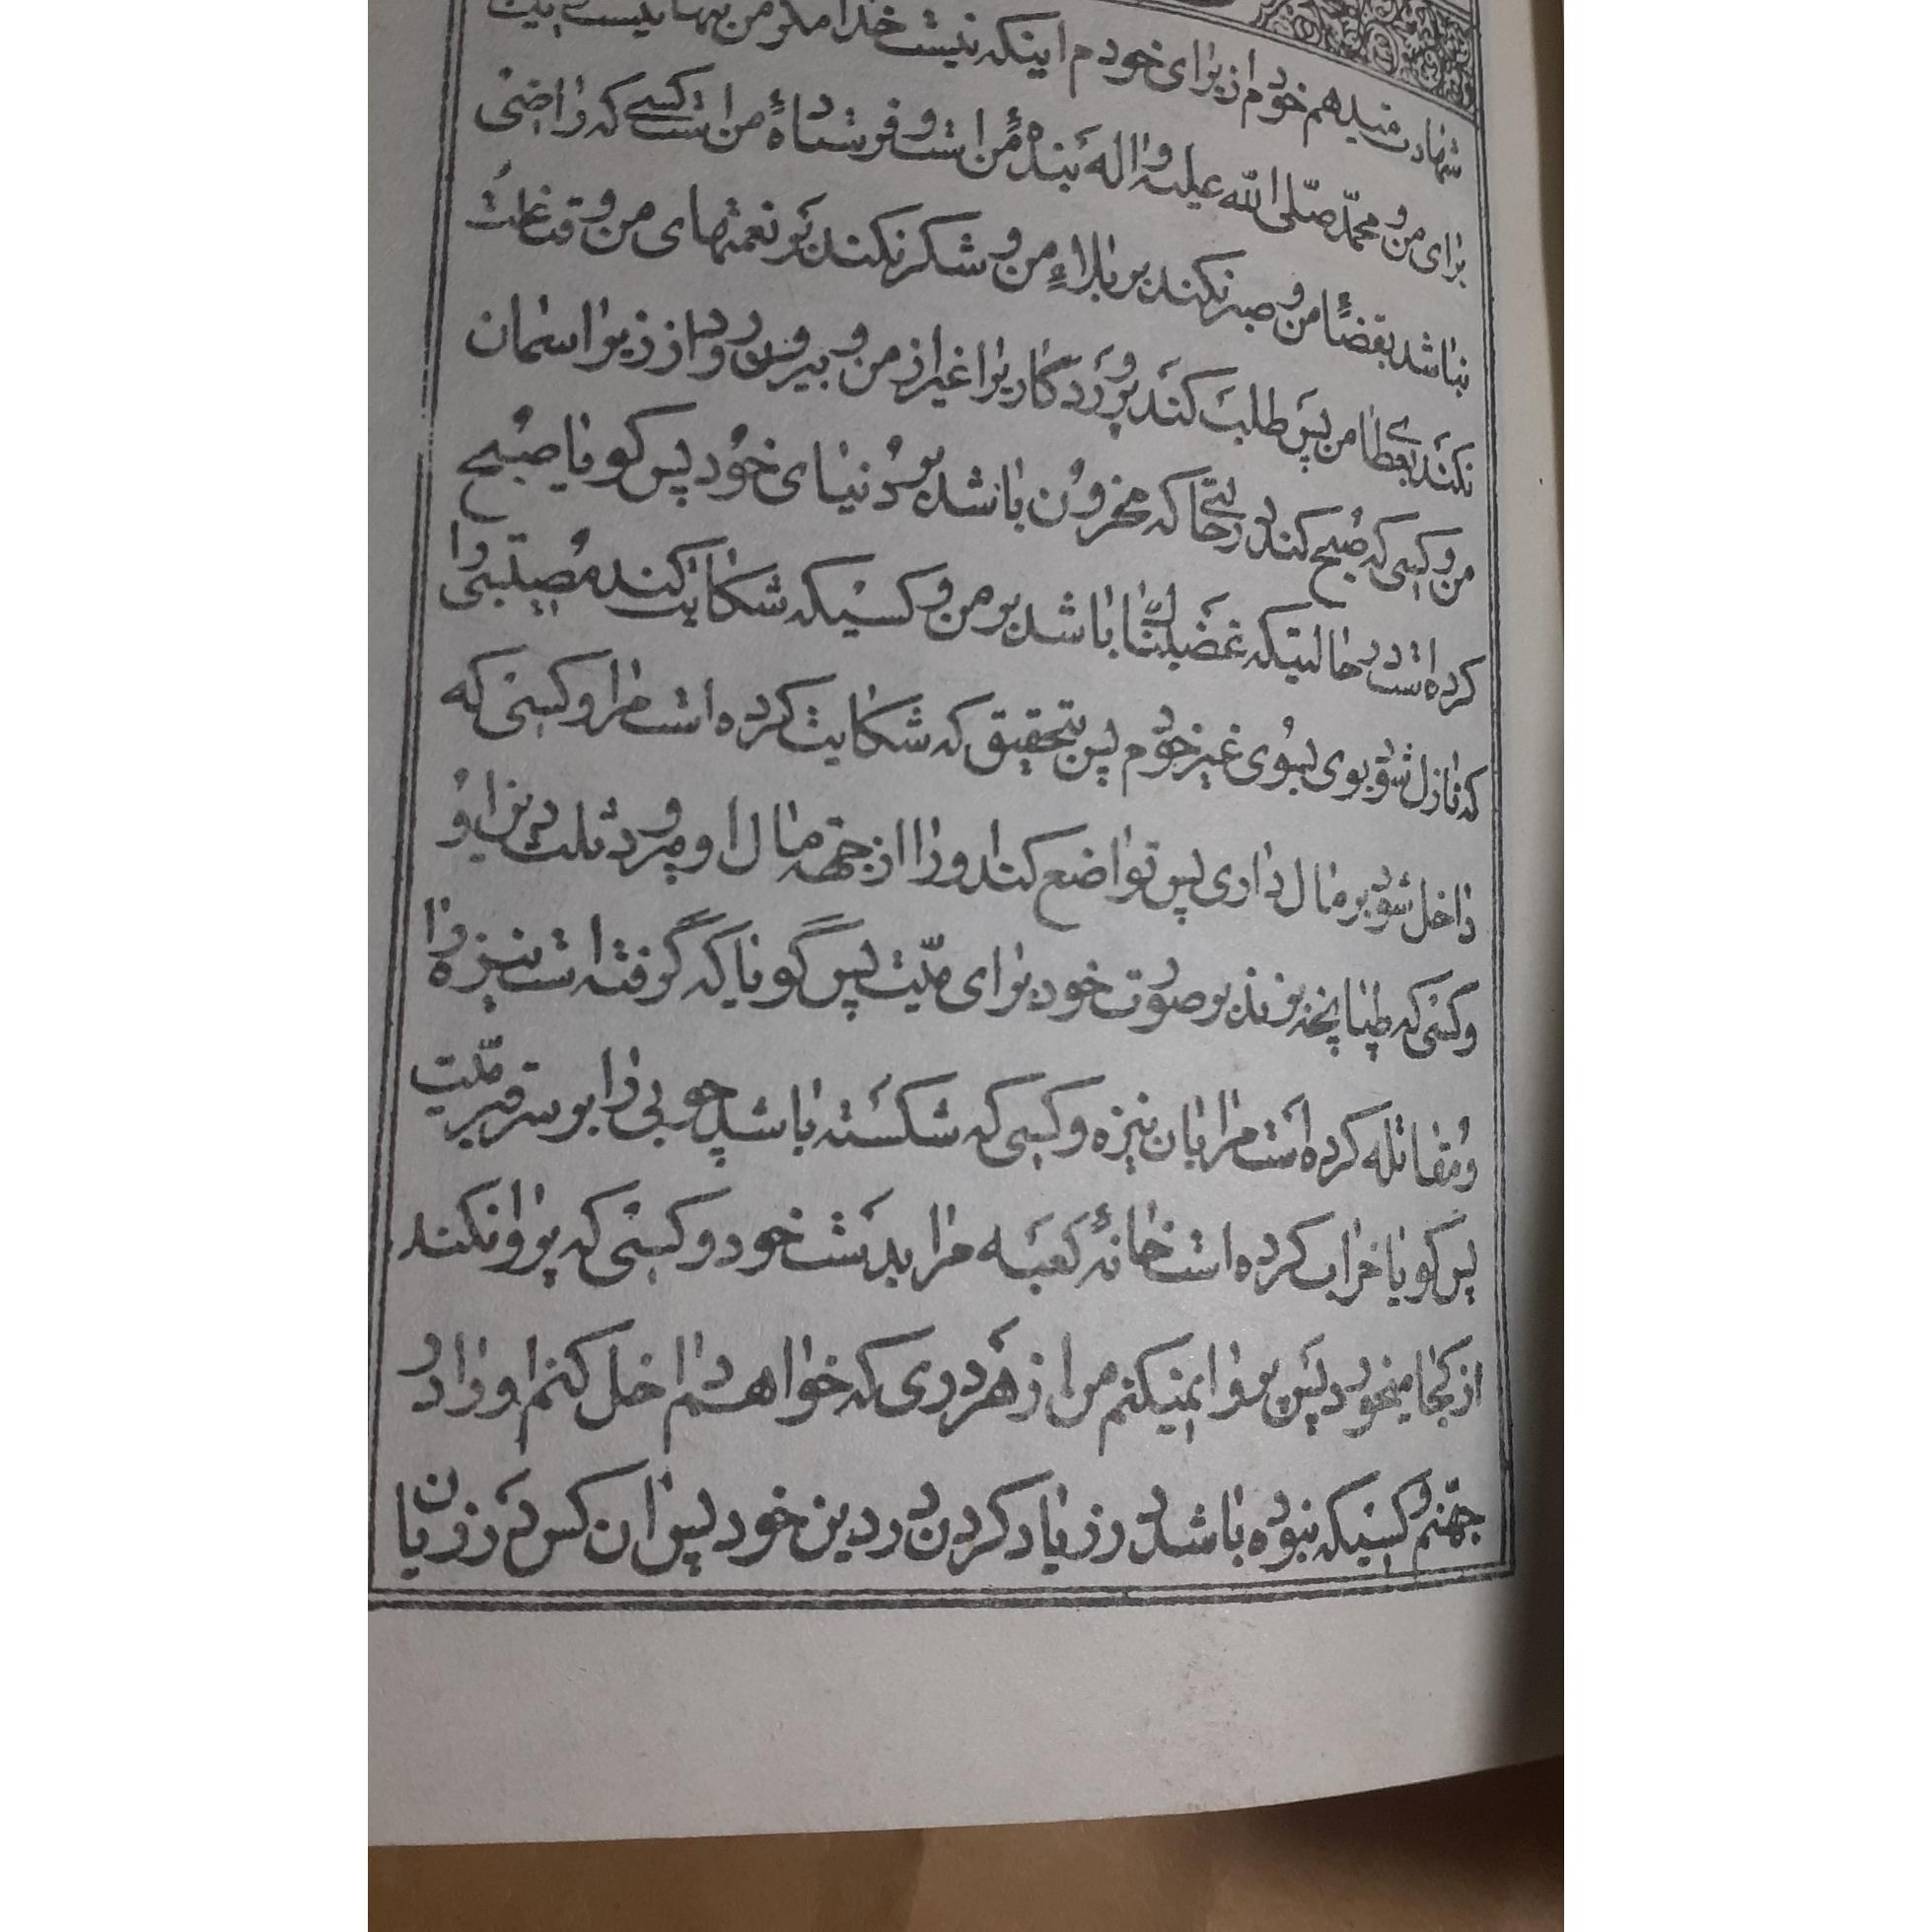 شهادت میدهم خودم از برای خودم اینکه نیست خدا مگر من تنها نیست
برای من و محمّد صلّی الله علیه و اله بنده من است و فرستاده من است کسے که راضی
نباشد بقضاء من و صبر نکند بر بلاء من و شکر نکند بر نعمتهای من و قناعت
نکند بعطاے من پس طلب کند پروردگاریرا غیر از من و بیرون رود از زیر اسمان
من و کسی که صبح کند در حالتے که محزون باشد بر دنیای خود پس گویا صبح
کرده است در حالتیکه غضبناک باشد بر من و کسیکه شکایت کند مصیبتی را
که نازل شود بوی بسوی غیر خودم پس بتحقیق که شکایت کرده است مرا و کسی که
داخل شود بر مال داری پس تواضع کند او را از جهة مال او میرود ثلث دین او
و کسی که طپانچه بزند بر صورت خود برای میّت پس گویا که گرفته است نیزه را
و مقاتله کرده است مرا بان نیزه و کسی که شکسته باشد چوبی را بر سر قبر میّت
پس گویا خراب کرده است خانهٔ کعبه مرا بدست خود و کسی که پروا نکند
از کجا میخورد پس پروا نمیکنم من از هر دری که خواهم داخل کنم او را در
جهنّم و کسیکه نبوده باشد در زیاد کردن در دین خود پس ان کس در زیان